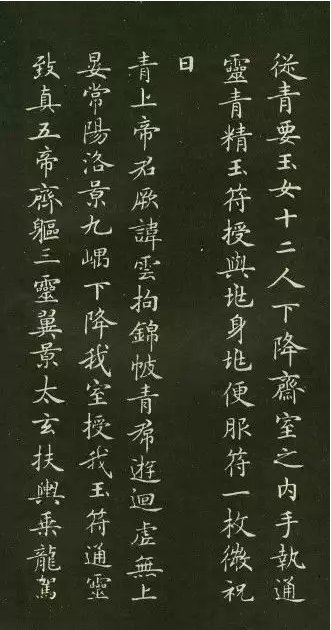 從青要玉女十二人下降齋室之内手執通
靈青精玉符授與兆身兆便服符一枚微祝
曰
青上帝君厥諱雲拘錦帔青帬遊迴虚無上
晏常陽洛景九嵎下降我室授我玉符通靈
致真五帝齊軀三靈翼景太玄扶輿乘龍駕